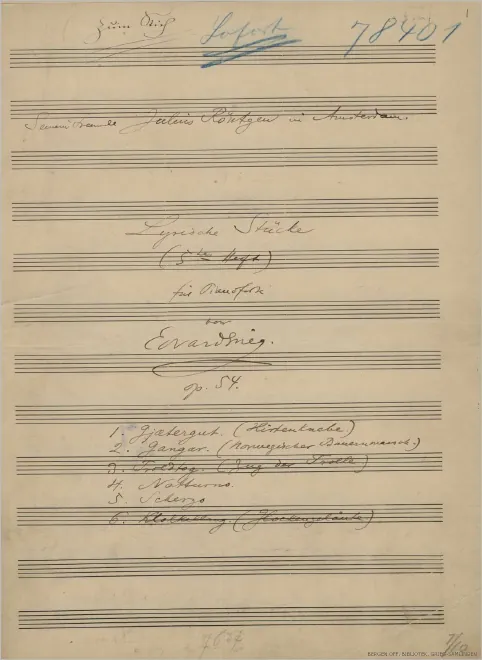 Zum Stich Sofort 78401
1
Seinem Freunde Julius Röntgen in Amsterdam.
Lyrische Stücke
(5te Heft)
für Pianoforte
von
Edvard Grieg.
op. 54.
1. Gjætergut. (Hirtenknabe)
2. Gangar. (Norwegischer Bauernmarsch.)
3. Troldtog. (Zug der Trolle)
4. Notturno.
5. Scherzo
6. Klokkeklang. (Glockengeläute)
BERGEN OFF. BIBLIOTEK, GRIEGSAMLINGEN